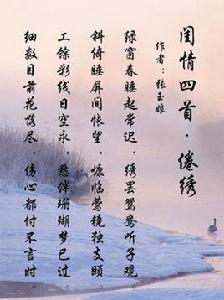 闺情四首·倦绣
作者:张玉娘
绿窗春睡起常迟,绣罢鸳鸯听子规。
斜倚睡屏间怅望,慵临莺镜独支颐。
工馀彩线日空永,愁伴珊瑚梦已过。
细数目前花落尽,伤心都付不言时。